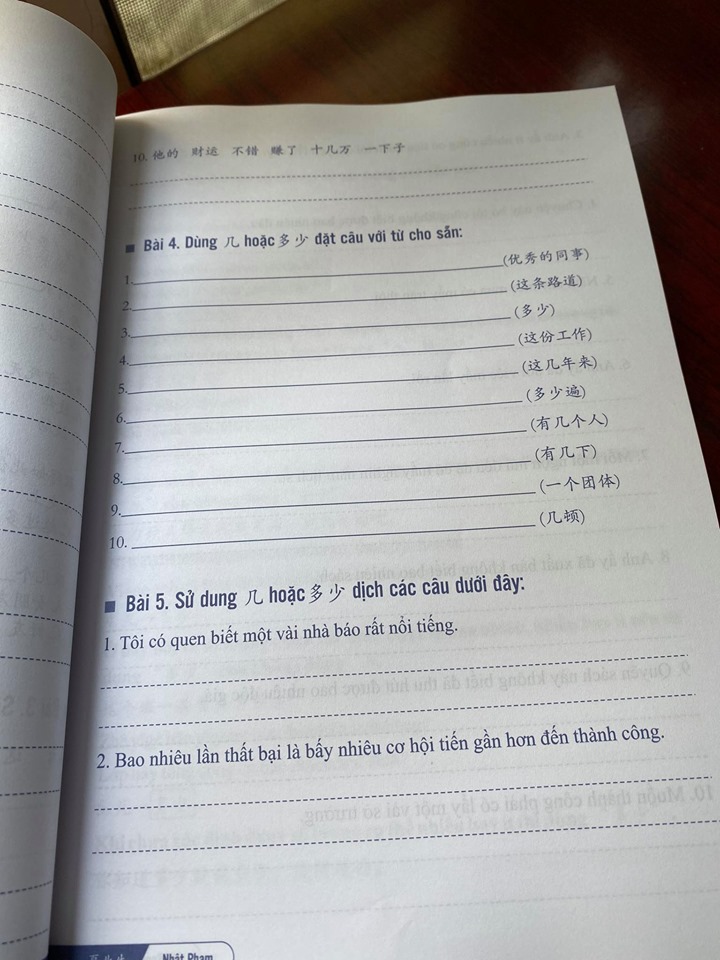 10. 他的 财运 不错 赚了 十几万 一下子
Bài 4. Dùng 几 hoặc 多少 đặt câu với từ cho sẵn:
1. (优秀的同事)
2. (这条路道)
3. (多少)
4. (这份工作)
5. (这几年来)
6. (多少遍)
7. (有几个人)
8. (有几下)
9. (一个团体)
10. (几顿)
Bài 5. Sử dung 几 hoặc 多少 dịch các câu dưới đây:
1. Tôi có quen biết một vài nhà báo rất nổi tiếng.
2. Bao nhiêu lần thất bại là bấy nhiêu cơ hội tiến gần hơn đến thành công.
Nhật Phạm